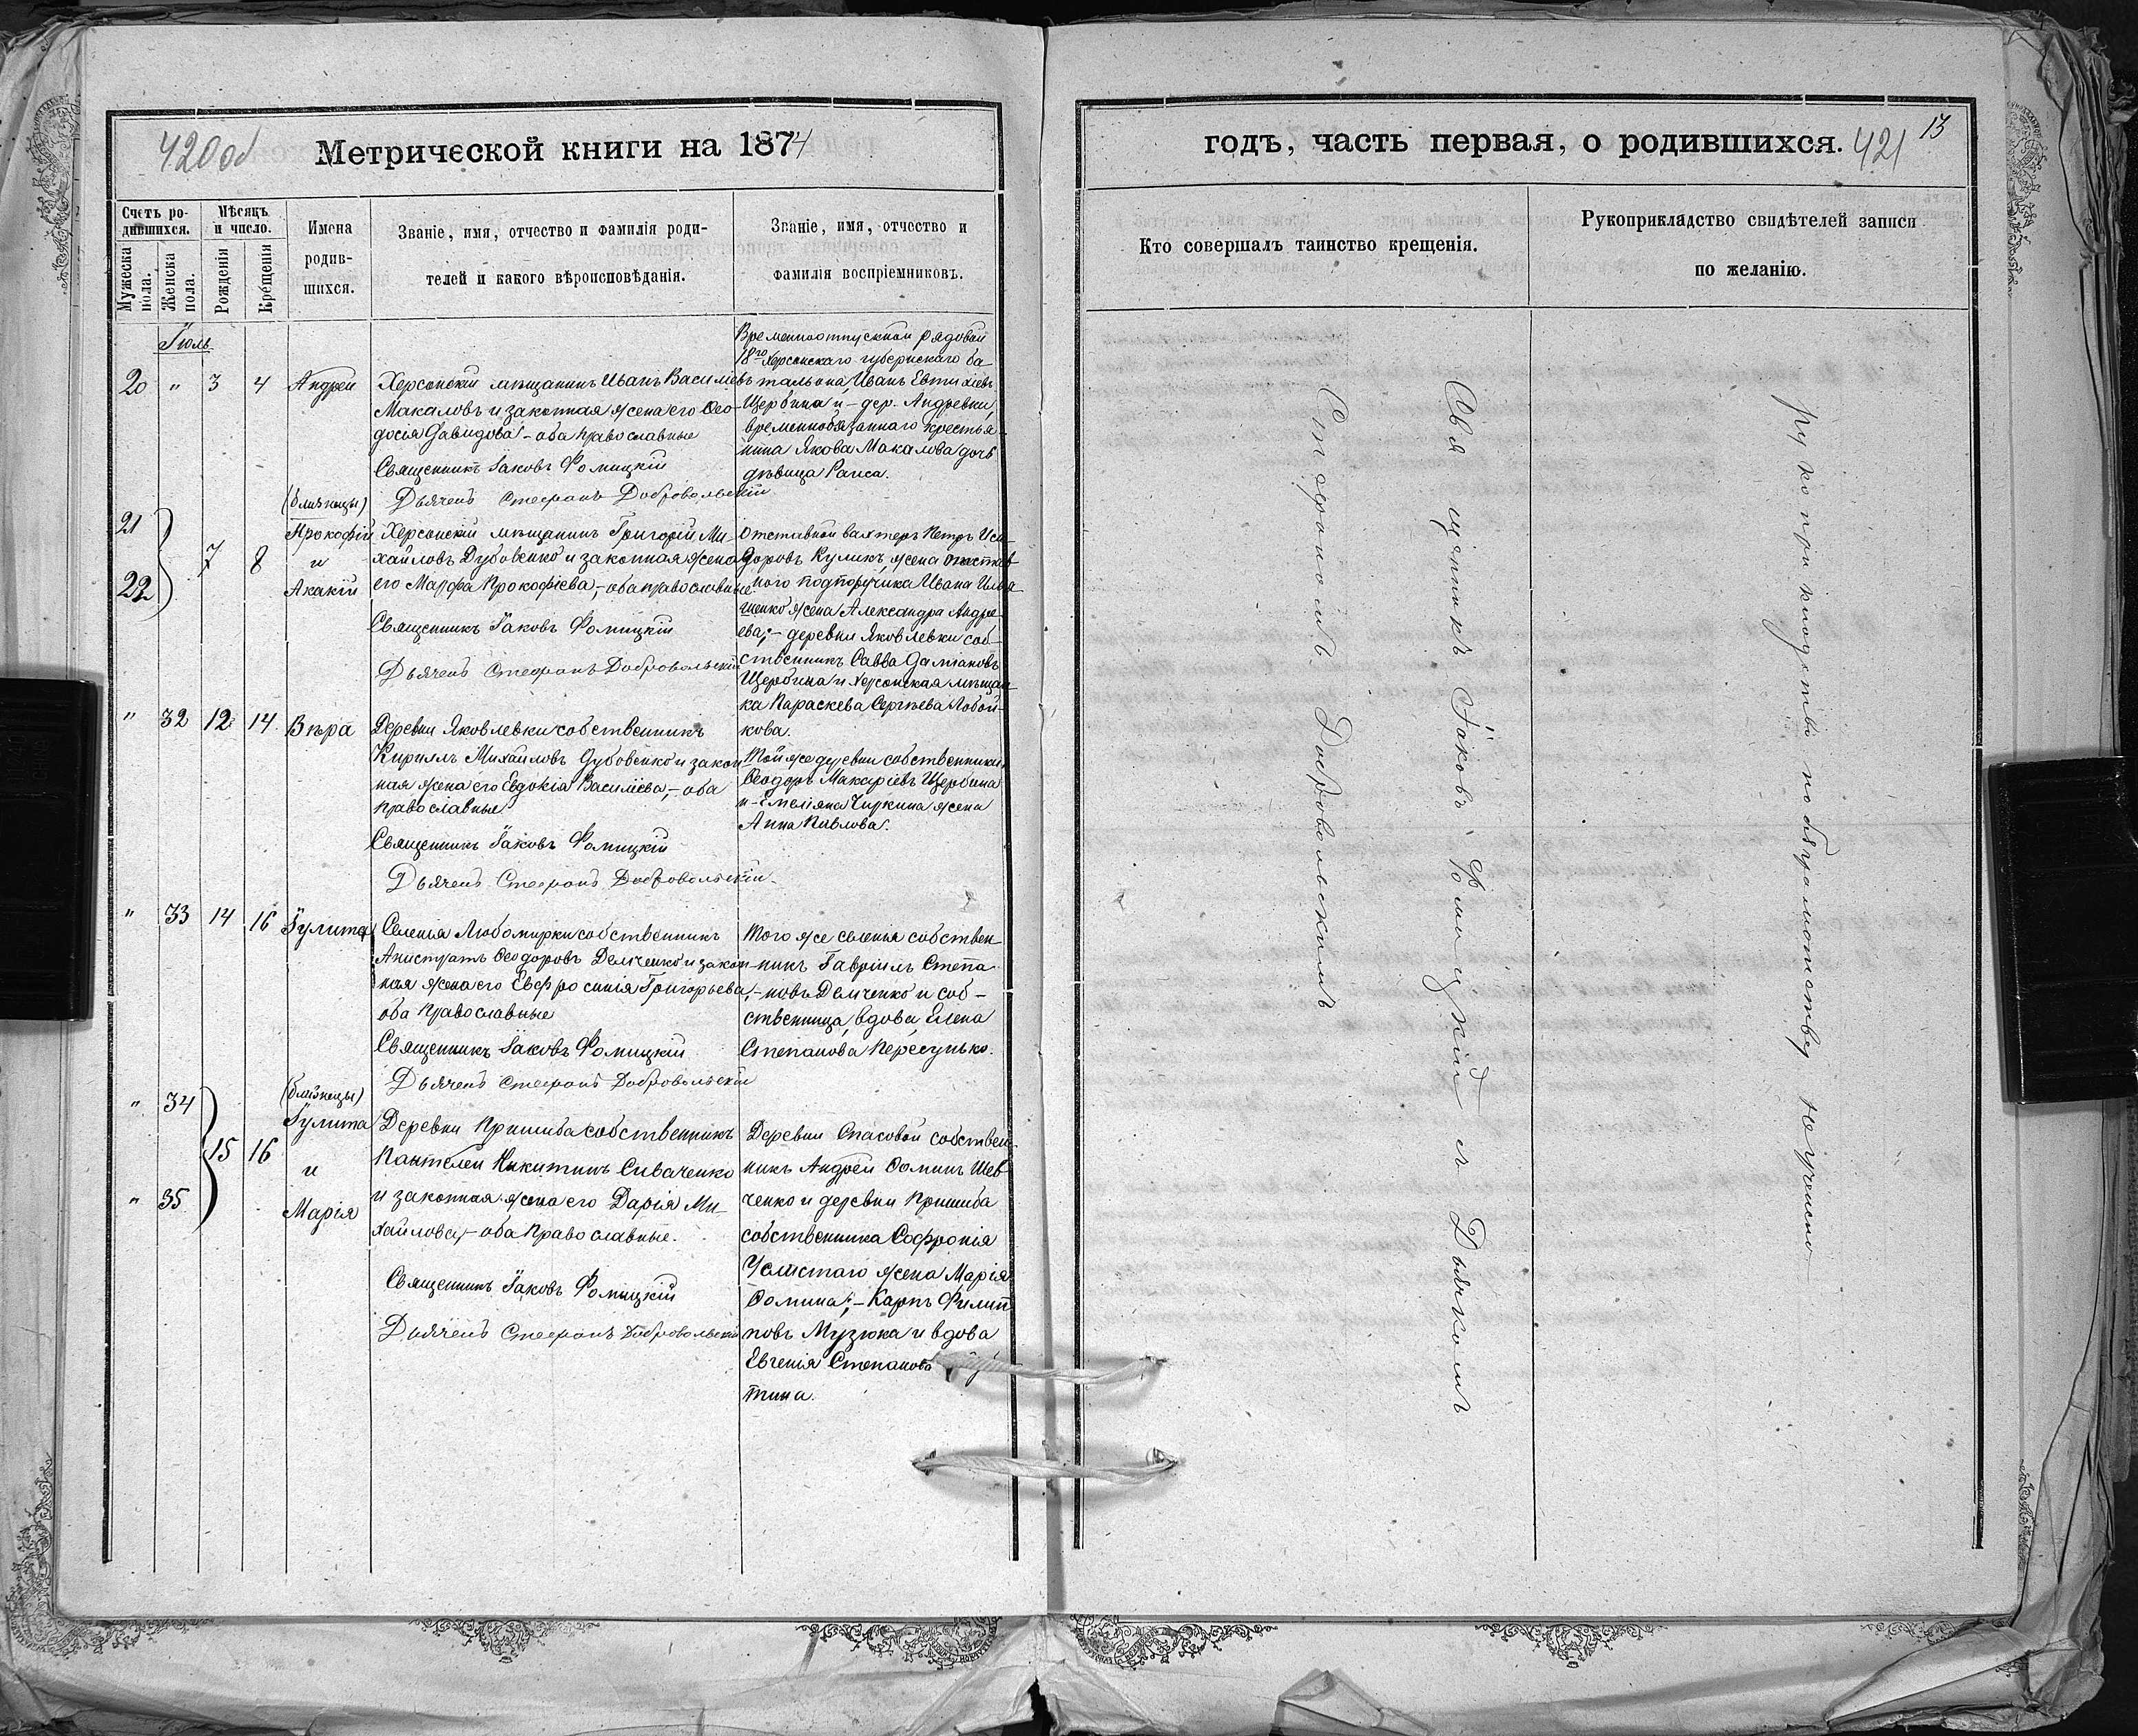 420 об
Метрической книги на 1874
Счетъ ро-
дившихся.
Мѣсяцъ
и число.
Мужеска
пола.
Женска
пола.
Рожденія
Крещенія
Имена
родив-
шихся.
Званіе, имя, отчество и фамилія роди-
телей и какого вѣроисповѣданія.
Званіе, имя, отчество и
фамилія воспріемниковъ.
Іюль
20 " 3 4 Андрей
Херсонскій мѣщанинъ Иванъ Василіевъ
Макаловъ и законная жена его Ѳео-
досія Давидова – оба православные
Священникъ Іаковъ Фомицкій
Дьячекъ Стефанъ Добровольскій
Временноотпускной рядовой
18го Херсонскаго губернскаго ба-
тальона, Иванъ Евтихіевъ
Щербина и – дер. Андревки,
временнобязаннаго крестья-
нина Якова Макалова дочь
дѣвица Раиса.
21
22
7 8
(близнецы)
Прокофій
и
Акакій
Херсонскій мѣщанинъ Григорій Ми-
хайловъ Дубовенко и законная жена
его Марфа Прокофіева, – оба православные
Священникъ Іаковъ Фомицкій
Дьячекъ Стефанъ Добровольскій
Отставной вахтеръ Петръ Иси-
доровъ Куликъ, жена отстав-
ного подпоручика Ивана
жена Александра Андре-
ева; – деревни Яковлевки соб-
ственникъ Савва Даміановъ
Щербина и Херсонская мѣщан-
ка Параскева Сергѣева Лобой-
кова.
" 32 12 14 Вѣра
Деревни Яковлевки собственникъ
Кириллъ Михайловъ Дубовенко и закон-
ная жена его Евдокія Василіева, – оба
православные
Священникъ Іаковъ Фомицкій
Дьячекъ Стефанъ Добровольскій
Той же деревни собственники
Ѳеодоръ Макаріевъ Щербина
и – Емеліяна Чиркина жена
Анна Павлова.
" 33 14 16 Іулита
Селенія Любомирки собственникъ
Анистратъ Ѳеодоровъ Демченко и закон-
ная жена его Евфросинія Григорьева,
оба православные
Священникъ Іаковъ Фомицкій
Дьячекъ Стефанъ Добровольскій
Того же селенія собствен-
никъ Гавріилъ Степа-
новъ Демченко и соб-
ственница, вдова, Елена
Степанова Пересунько.
" 34
" 35
15 16
(близнецы)
Іулита
и
Марія
Деревни Пришиба собственникъ
Пантелей Никитинъ Сиваченко
и законная жена его Дарія Ми-
хайлова, – оба православные.
Священникъ Іаковъ Фомицкій
Дьячекъ Стефанъ Добровольскій
Деревни Спасовой собствен-
никъ Андрей Ѳоминъ Шев-
ченко и деревни Пришиба
собственника Софронія
жена Марія
Ѳомина; – Карпъ Филип-
повъ Музюка и вдова
Евгенія Степанова
тина.
годъ, часть первая, о родившихся.
421 13
Кто совершалъ таинство крещенія.
Рукоприкладство свидѣтелей записи
по желанію.
Священникъ Іаковъ Фомицкій съ Дьячкомъ
Стефаномъ Добровольскимъ